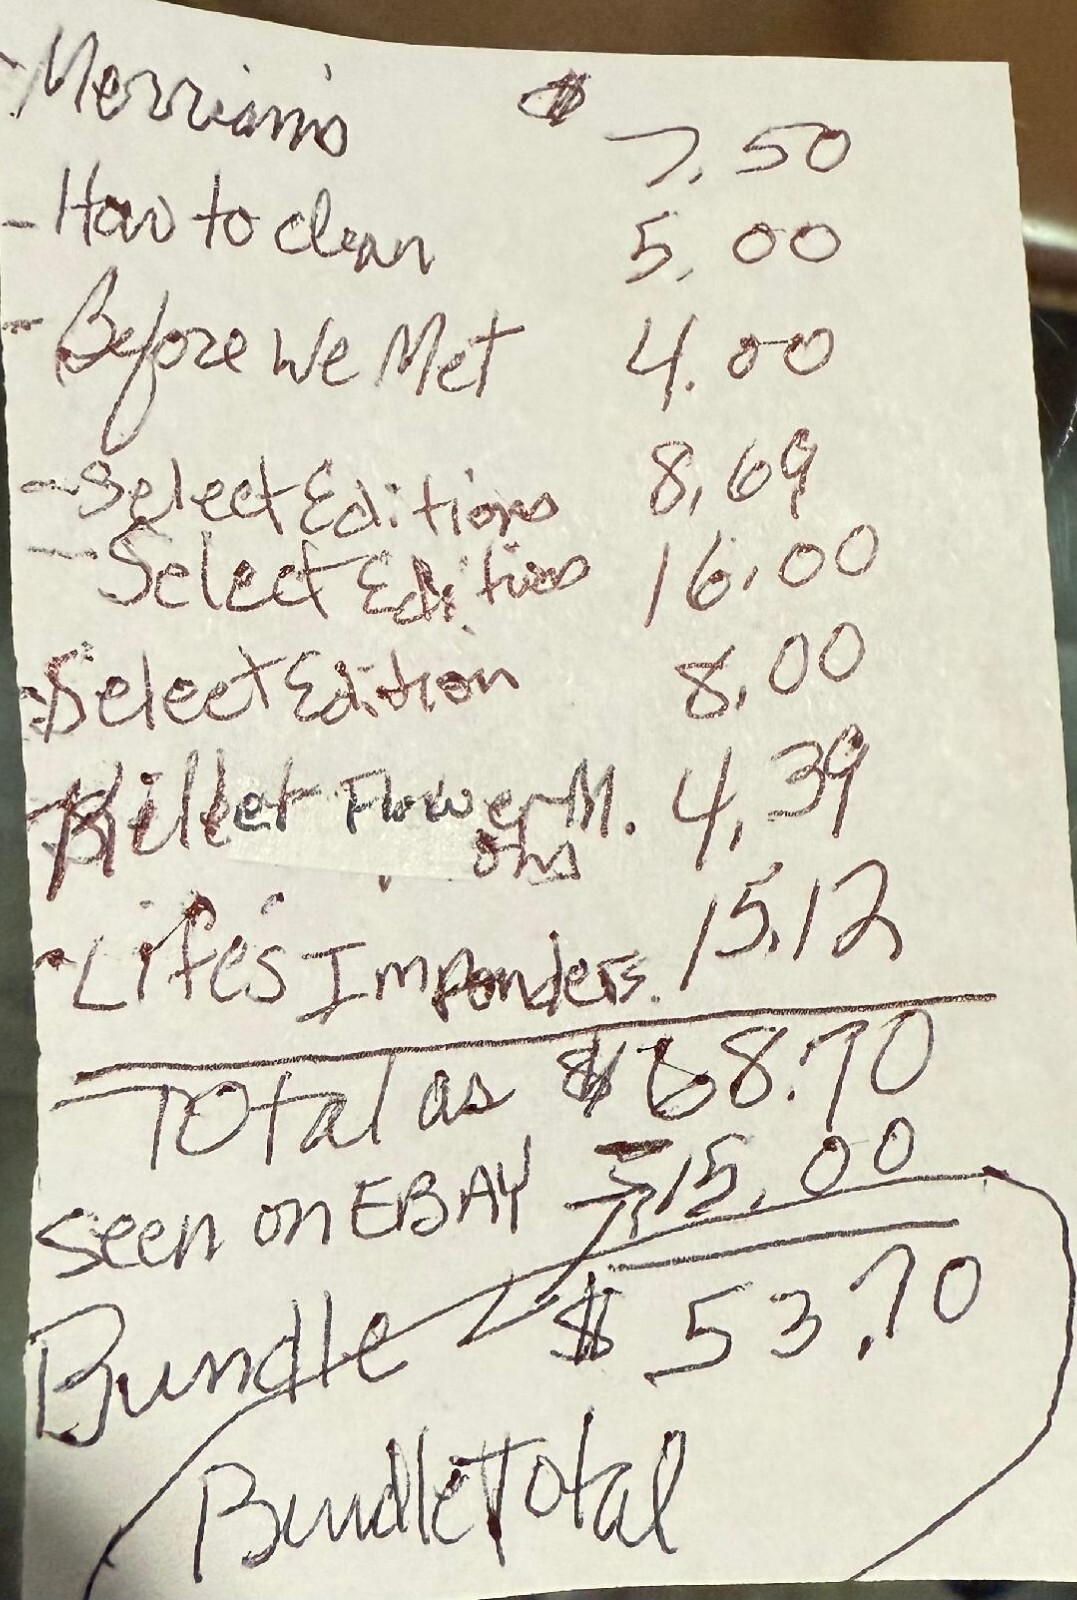 - Merriam's $ 7.50
- How to clean 5.00
- Before We Met 4.00
- Select Editions 8.69
- Select Editions 16.00
- Select Edition 8.00
- Killet Flower M. 4.39
ons
- Life's Imponders. 15.12
Total as $68.70
seen on EBAY - 15.00
Bundle $ 53.70
Bundle Total